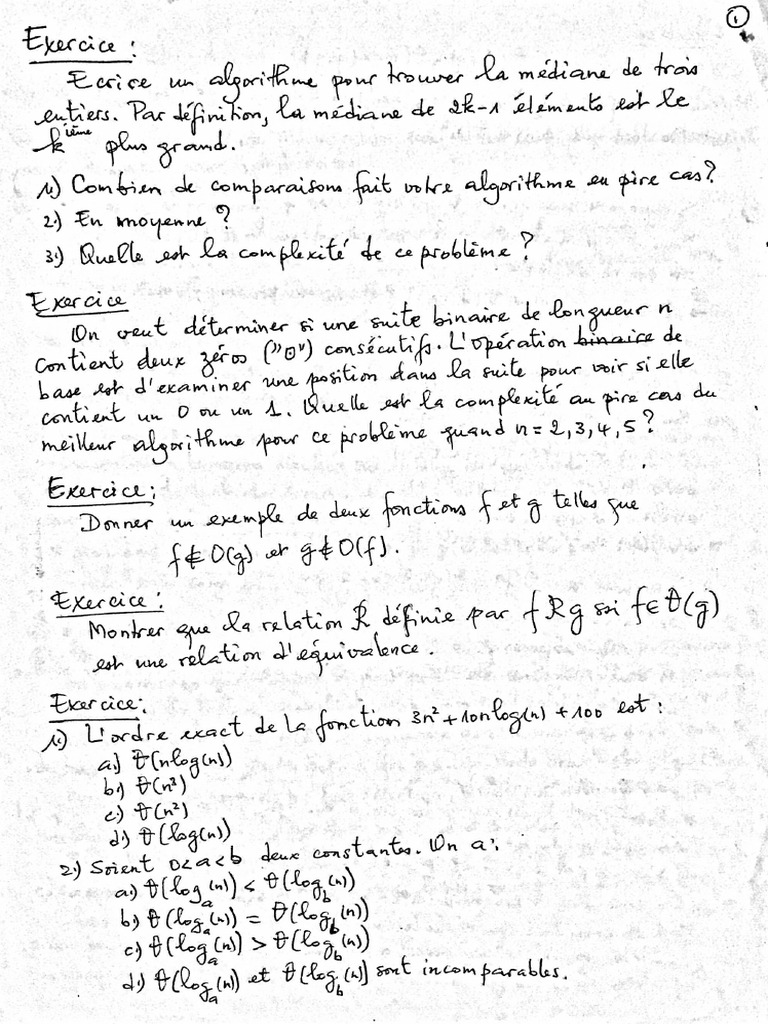 1
Exercice :
Ecrire un algorithme pour trouver la médiane de trois
entiers. Par définition, la médiane de 2k-1 éléments est le
k ième plus grand.
1.) Combien de comparaisons fait votre algorithme en pire cas?
2.) En moyenne ?
3.) Quelle est la complexité de ce problème ?
Exercice
On veut déterminer si une suite binaire de longueur n
contient deux zéros ("0") consécutifs. L'opération binaire de
base est d'examiner une position dans la suite pour voir si elle
contient un 0 ou un 1. Quelle est la complexité au pire cas du
meilleur algorithme pour ce problème quand n = 2, 3, 4, 5 ?
Exercice :
Donner un exemple de deux fonctions f et g telles que
f ∉ O(g) et g ∉ O(f).
Exercice :
Montrer que la relation R définie par f R g ssi f ∈ θ(g)
est une relation d'équivalence.
Exercice :
1.) L'ordre exact de la fonction 3n² + 10nlog(n) + 100 est :
a.) θ(nlog(n))
b.) θ(n³)
c.) θ(n²)
d.) θ(log(n))
2.) Soient 0<a<b deux constantes. On a :
a.) θ(log_a(n)) < θ(log_b(n))
b.) θ(log_a(n)) = θ(log_b(n))
c.) θ(log_a(n)) > θ(log_b(n))
d.) θ(log_a(n)) et θ(log_b(n)) sont incomparables.